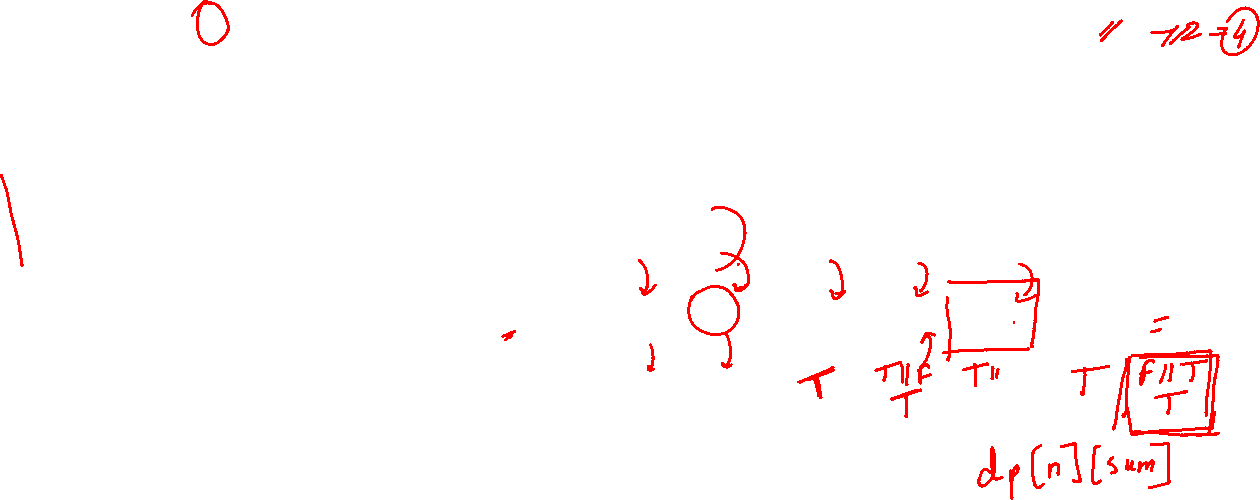 0
// 7/2 = 4
=
T T||F T|| T F||T
T T
dp[n][sum]